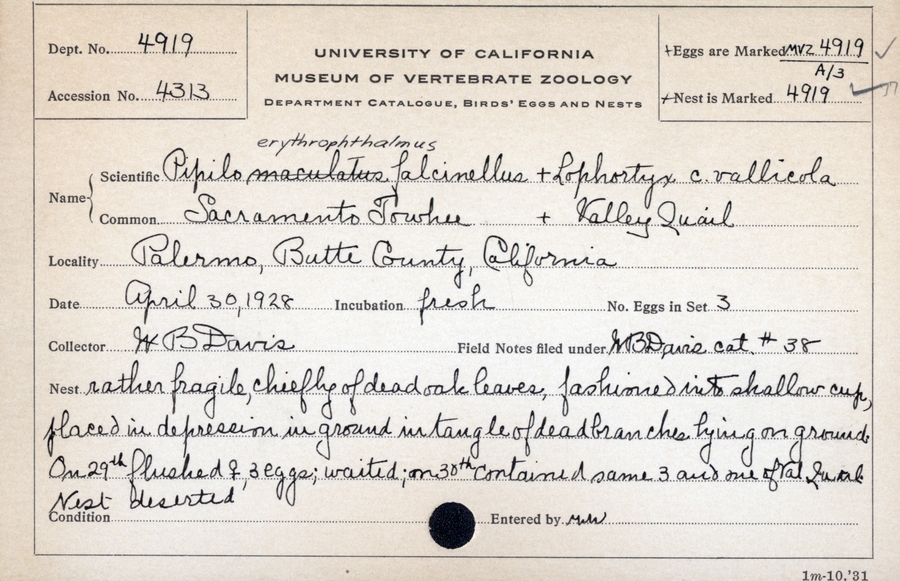 Dept. No. 4919
Accession No. 4313
UNIVERSITY OF CALIFORNIA
MUSEUM OF VERTEBRATE ZOOLOGY
DEPARTMENT CATALOGUE, BIRDS' EGGS AND NESTS
+Eggs are Marked MVZ 4919 ✓
A/3
+Nest is Marked 4919
erythrophthalmus
Name Scientific Pipilo maculatus falcinellus + Lophortyx c. vallicola
Common Sacramento Towhee + Valley Quail
Locality Palermo, Butte County, California
Date April 30, 1928 Incubation fresh No. Eggs in Set 3
Collector W B Davis Field Notes filed under WBDavis cat. # 38
Nest rather fragile, chiefly of dead oak leaves, fashioned into shallow cup,
placed in depression in ground in tangle of dead branches lying on ground.
On 29th flushed ♀, 3 eggs; waited; on 30th contained same 3 and one of Val. Quail.
Nest deserted
Condition Entered by
1m-10,'31